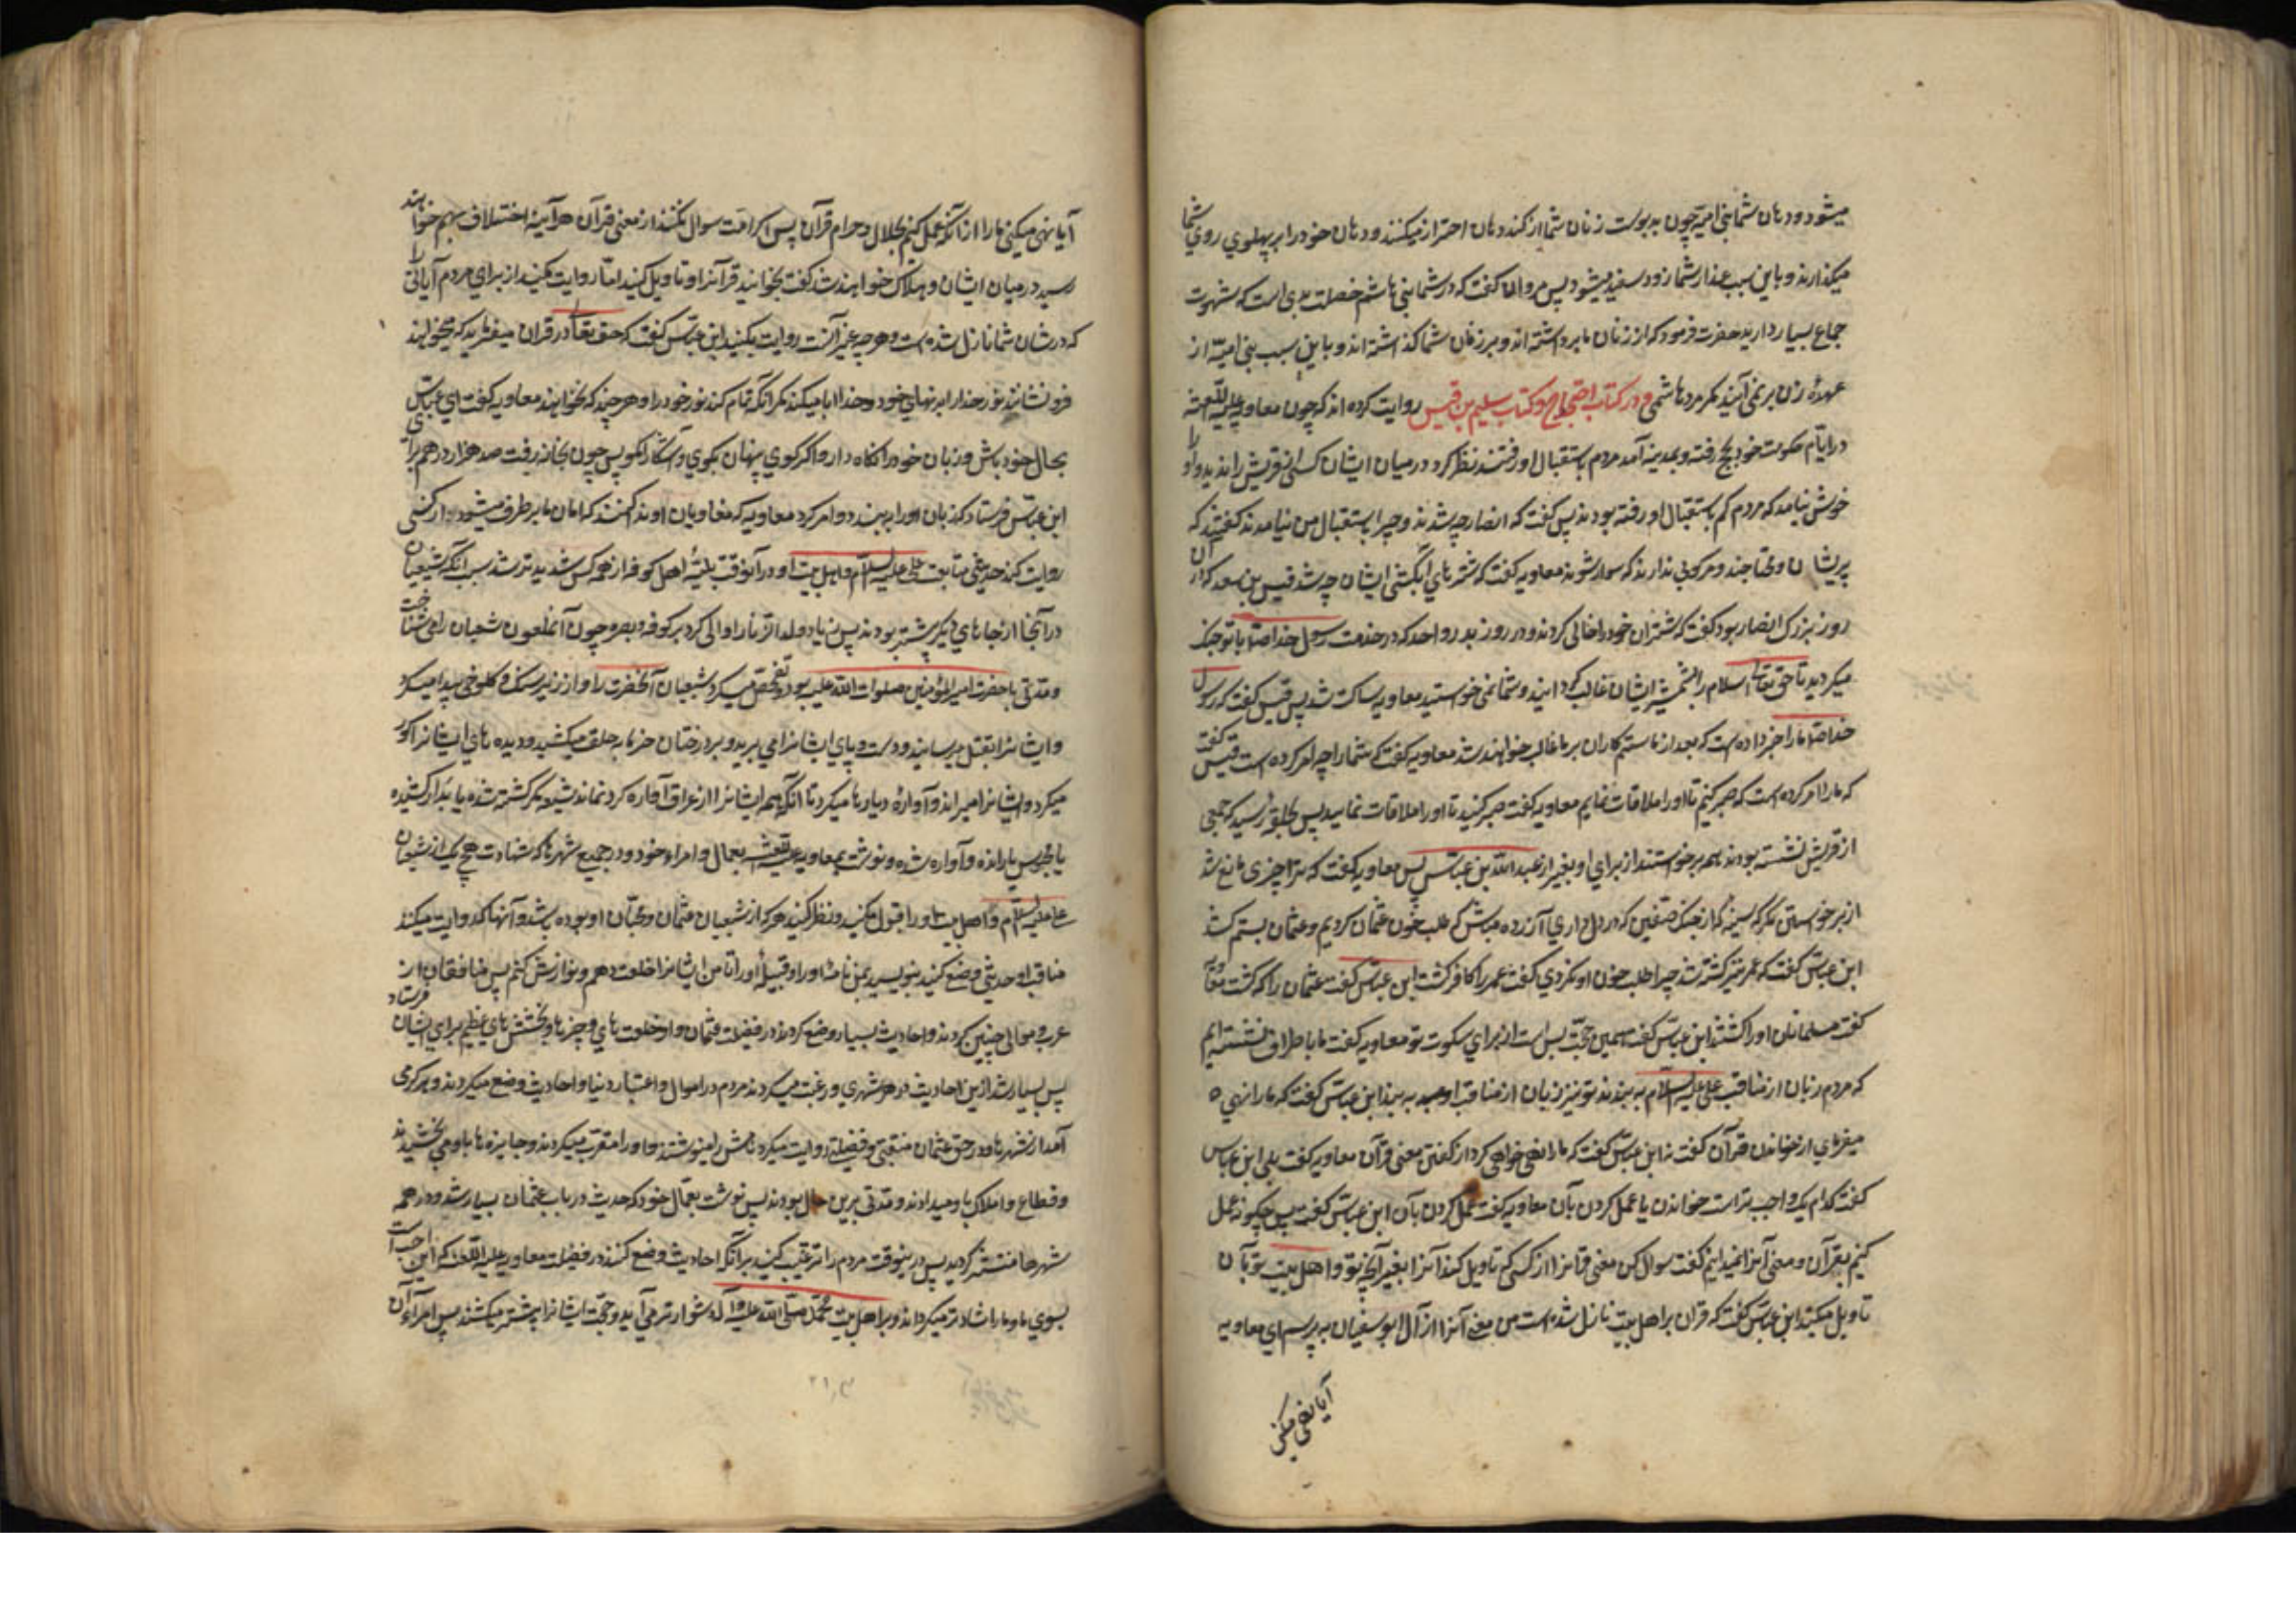 میشود و دهان شما بنی امیه چون بدبوست زنان شما از کند دهان احتراز میکنند و دهان خود را بر پهلوی روی شما
میکذارند و باین سبب عذار شما زود سفید میشود پس مروان گفت که در شما بنی هاشم خصلت بدی است که شهوت
جماع بسیار دارید حضرت فرمود که از زنان ما برداشته اند و بر زنان شما گذاشته اند و باین سبب بنی امیه از
عهدهٔ زن بر نمی آیند مگر مرد هاشمی و در کتاب احتجاج و کتاب سلیم بن قیس روایت کرده اند که چون معاویه علیه اللعنه
در ایام حکومت خود بحج رفته و بمدینه آمد مردم باستقبال او رفتند نظر کرد در میان ایشان کسی از قریش را ندید و او را
خوش نیامد که مردم کم باستقبال او رفته بودند پس گفت که انصار چه شدند و چرا باستقبال من نیامدند گفتند که
پریشان و محتاجند و مرکوبی ندارند که سوار شوند معاویه گفت که شترهای آبکشی ایشان چه شد قیس بن سعد که آن
روز بزرک انصار بود گفت که شتران خود را فانی کردند در روز بدر و احد که در خدمت رسول خدا ص با تو جنک
میکردند تا حق تعالی اسلام را بشمشیر ایشان غالب گردانید و شما نمی خواستید معاویه ساکت شد پس قیس گفت که رسول
خدا ص ما را خبر داده است که بعد از ما ستم کاران بر ما غالب خواهند شد معاویه گفت که شما را چه امر کرده است قیس گفت
که ما را امر کرده است که صبر کنیم تا او را ملاقات نمائیم معاویه گفت صبر کنید تا او را ملاقات نمایید پس بحلقه رسید که جمعی
از قریش نشسته بودند همه برخواستند از برای او بغیر از عبد الله بن عباس پس معاویه گفت که ترا چیزی مانع نشد
از برخواستن مکر که سینهٔ که از جنک صفین که در دل داری آزرده مباش که طلب خون عثمان کردیم و عثمان بستم کشته شد
ابن عباس گفت که عمر نیز کشته شد چرا طلب خون او نکردی گفت عمر را کافر کشت ابن عباس گفت عثمان را که کشت معاویه
گفت مسلمانان او را کشتند ابن عباس گفت همین حجت بس است از برای سکوت تو معاویه گفت ما باطراف نوشته ایم
که مردم زبان از مناقب علی علیه السلام به بندند تو نیز زبان از مناقب او به بند ابن عباس گفت که ما را نهی
میفرمای از خواندن قرآن گفت نه ابن عباس گفت که ما را نهی خواهی کرد از گفتن معنی قرآن معاویه گفت بلی ابن عباس
گفت کدام یک واجب تر است خواندن یا عمل کردن بآن معاویه گفت عمل کردن بآن ابن عباس گفت پس چگونه عمل
کنیم بقرآن و معنی آنرا نفهمیدیم گفت سوال کن معنی قرآن را از کسی که تاویل کند آنرا بغیر آنچه تو و اهل بیت تو بآن
تاویل میکنند ابن عباس گفت که قرآن بر اهل بیت نازل شده است من معنی آنرا از آل ابو سفیان به پرسم ای معاویه
آیا نهی میکنی
آیا نهی میکنی ما را از آنکه عمل کنیم بحلال و حرام قرآن پس اگر امت سوال نکنند از معنی قرآن هر آینه اختلاف بهم خواهند
رسید در میان ایشان و هلاک خواهند شد گفت بخوانید قرآنرا و تاویل کنید اما روایت مکنید از برای مردم آیاتی را
که در شان شما نازل شده است و هر چه غیر آنست روایت بکنید ابن عباس گفت که حق تعالی در قرآن میفرماید که میخواهند
فرو نشانند نور خدا را بدنهای خود و خدا ابا میکند مگر آنکه تمام کند نور خود را و هر چند که نخواهند معاویه گفت ای ابن عباس
بحال خود باش و زبان خود را نگاه دار و اگر گوئی پنهان بگوی و آشکارا مگو پس چون بخانه رفت صد هزار درهم برای
ابن عباس فرستاد که زبان او را به بندد و امر کرد معاویه که منادیان او ندا کنند که امان ما بر طرف میشود از کسی
روایت کند حدیثی در منقبت علی علیه السلام و اهل بیت او و در آنوقت بلیهٔ اهل کوفه از همه کس شدیدتر شد بسبب آنکه شیعیان
در آنجا از جاهای دیگر بیشتر بودند پس زیاد ولد الزنا را والی کرد بر کوفه و بصره چون آنملعون شیعیان را می شناخت
و مدتی با حضرت امیر المؤمنین صلوات الله علیه بود تفحص میکرد شیعیان آنحضرت را و از زیر سنک و کلوخ پیدا میکرد
و ایشانرا بقتل میرسانید و دست و پای ایشانرا می برید و بر درختان خرما به حلق میکشید و دیده های ایشانرا کور
میکرد و ایشانرا میراند و آوارهٔ دیارها میکرد تا آنکه همه ایشانرا از عراق آواره کرد نماند شیعه مگر کشته شده یا بدار کشیده
یا محبوس یا رانده و آواره شده و نوشت معاویه بعمال و امراء خود در جمیع شهرها که شهادت هیچ یک از شیعیان
علی علیه السلام و اهل بیت او را قبول مکنید و نظر کنید هر که از شیعیان عثمان و محبان او بوده باشد و آنها که روایت میکنند
مناقب او حدیثی وضع کنید بنویسید بمن نام او را و قبیلهٔ او را تا من ایشانرا خلعت دهم و نوازش کنم پس منافقان از
عرب و موالی چنین کردند و احادیث بسیار وضع کردند در فضیلت عثمان و او خلعت های و چیزها و بخشش های عظیم برای ایشان فرستاد
پس بسیار شد ازین احادیث در هر شهری و رغبت میکردند مردم در اموال و اعتبار دنیا و احادیث وضع میکردند و هر که می
آمد از شهرها و در حق عثمان منقبتی و فضیلتی روایت میکرد نامش را مینوشتند و او را مقرب میکردند و جایزه ها باو می بخشیدند
و قطاع و املاک باو میدادند و مدتی برین حال بودند پس نوشت بعمال خود که حدیث در باب عثمان بسیار شد و در همه
شهرها منتشر گردید پس درینوقت مردم را ترغیب کنید بر آنکه احادیث وضع کنند در فضیلت معاویه علیه اللعنه که این احب است
بسوی ما و ما را شادتر میگرداند و بر اهل بیت محمد صلی الله علیه و آله دشوارتر می آید و حجت ایشانرا بیشتر میشکند پس امراء آن